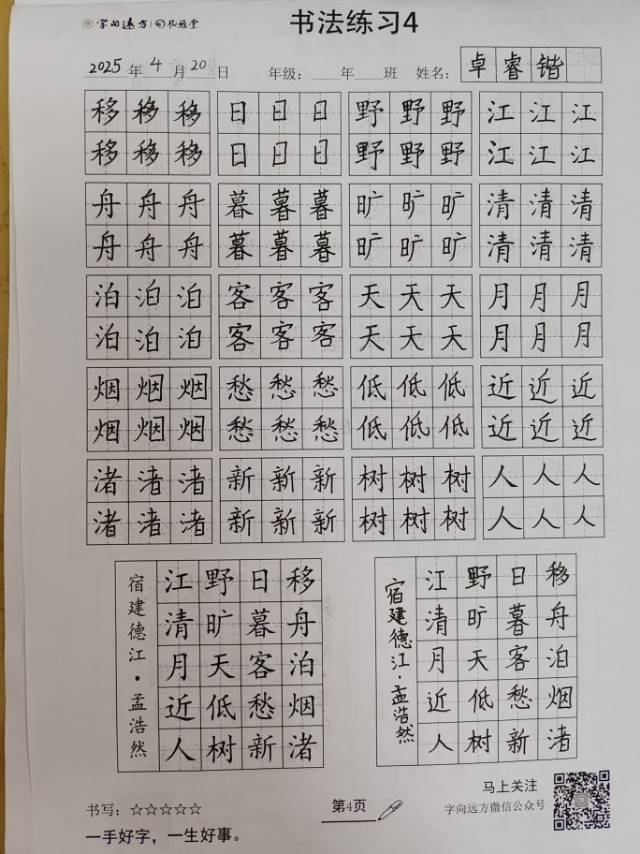 字向远方 孔庭堂
书法练习4
2025 年 4 月 20 日 年级: 年 班 姓名: 卓睿锴
移移移 日日日 野野野 江江江
移移移 日日日 野野野 江江江
舟舟舟 暮暮暮 旷旷旷 清清清
舟舟舟 暮暮暮 旷旷旷 清清清
泊泊泊 客客客 天天天 月月月
泊泊泊 客客客 天天天 月月月
烟烟烟 愁愁愁 低低低 近近近
烟烟烟 愁愁愁 低低低 近近近
渚渚渚 新新新 树树树 人人人
渚渚渚 新新新 树树树 人人人
移舟泊烟渚
日暮客愁新
野旷天低树
江清月近人
宿建德江·孟浩然
移舟泊烟渚
日暮客愁新
野旷天低树
江清月近人
宿建德江·孟浩然
书写:☆☆☆☆☆
一手好字,一生好事。
第4页
马上关注
字向远方微信公众号